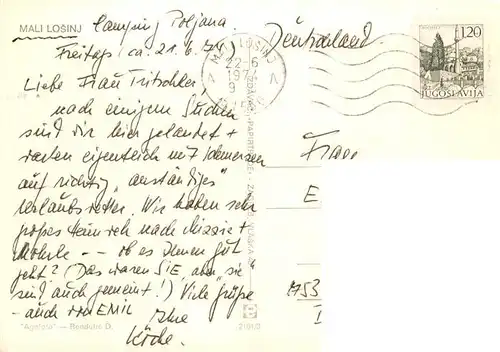 MALI LOŠINJ
Camping Poljana
Freitag, ca. 21.6.74
Deutschland
MALI LOŠINJ
22-6
197
9
1.20
JUGOSLAVIJA
Liebe Frau Fritschler,
nach einigem Suchen
sind wir hier gelandet +
warten eigentlich mit Schmerzen
auf richtig "anständiges"
Urlaubswetter. Wir haben sehr
großes Heimweh nach Mizzie +
Mohrle -- ob es Ihnen gut
geht? (Das waren SIE, aber "sie"
sind auch gemeint!) Viele Grüße
- auch von EMIL
Ihre
Frau
E
"Agefoto" — Rendulić D.